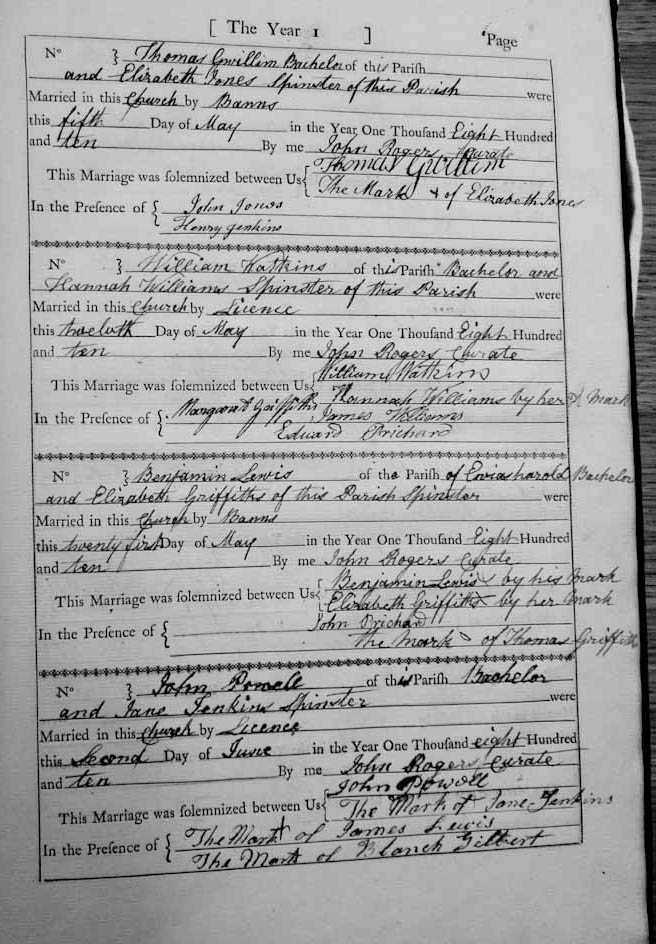 [ The Year 1 ] Page
No } Thomas Gwillim Bachelor of this Parish
and Elizabeth Jones Spinster of this Parish were
Married in this Church by Banns
this fifth Day of May in the Year One Thousand Eight Hundred
and ten By me John Rogers Curate
This Marriage was solemnized between Us { Thomas Gwillim
The Mark x of Elizabeth Jones
In the Presence of { John Jones
Henry Jenkins
No } William Watkins of this Parish Bachelor and
Hannah Williams Spinster of this Parish were
Married in this Church by Licence
this twelvth Day of May in the Year One Thousand Eight Hundred
and ten By me John Rogers Curate
This Marriage was solemnized between Us { William Watkins
Hannah Williams by her x Mark
In the Presence of { Margaret Griffiths James Williams
Edward Prichard
No } Benjamin Lewis of the Parish of Ewiasharold Bachelor
and Elizabeth Griffiths of this Parish Spinster were
Married in this Church by Banns
this twenty first Day of May in the Year One Thousand Eight Hundred
and ten By me John Rogers Curate
This Marriage was solemnized between Us { Benjamin Lewis x by his Mark
Elizabeth Griffiths x by her Mark
In the Presence of { John Prichard
the Mark x of Thomas Griffith
No } John Powell of this Parish Bachelor
and Jane Jenkins Spinster were
Married in this Church by Licence
this Second Day of June in the Year One Thousand eight Hundred
and ten By me John Rogers Curate
This Marriage was solemnized between Us { John Powell
The Mark of Jane Jenkins
In the Presence of { The Mark + of James Lewis
The Mark of Blanch Gilbert